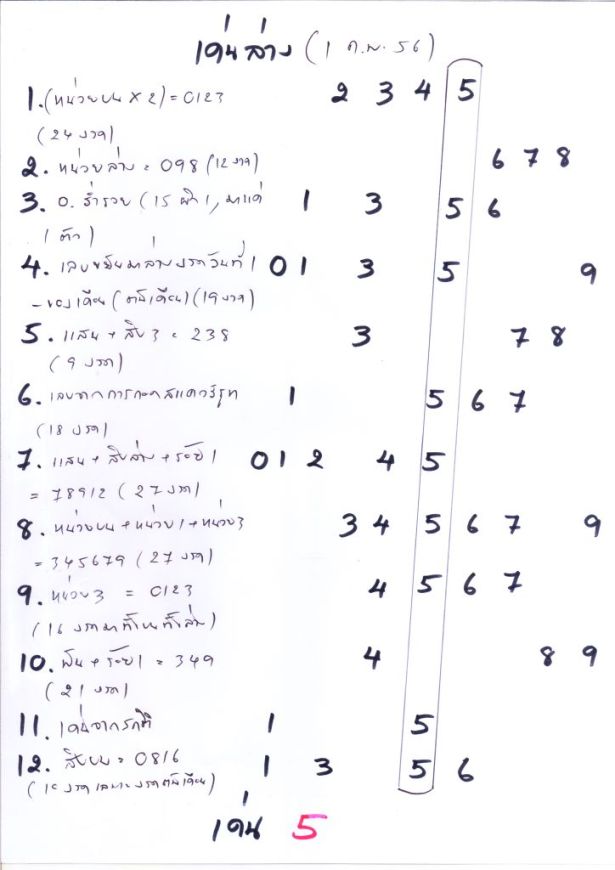 เด่นล่าง (1 ก.พ. 56)
1. (หน่วยบน x 2) = 0123 2 3 4 5
(24 งวด)
2. หน่วยล่าง = 098 (12 งวด) 6 7 8
3. อ. ร่ำรวย (15 ผิด 1, มาแค่ 1 3 5 6
1 ตัว)
4. เลขขยันมาล่างงวดวันที่ 1 0 1 3 5 9
- ของเดือน (ต้นเดือน) (19 งวด)
5. แสน + สิบ 3 = 238 3 7 8
(9 งวด)
6. เลขจากการถอดสแควร์รูท 1 5 6 7
(18 งวด)
7. แสน + สิบล่าง + ร้อย 1 0 1 2 4 5
= 78912 (27 งวด)
8. หน่วยบน + หน่วย 1 + หน่วย 3 3 4 5 6 7 9
= 345679 (27 งวด)
9. หน่วย 3 = 0123 4 5 6 7
(16 งวด มาทั้งบนทั้งล่าง)
10. พัน + ร้อย 1 = 349 4 8 9
(21 งวด)
11. เด่นจากสถิติ 1 5
12. สิบบน = 0816 1 3 5 6
งวด เฉพาะงวดต้นเดือน)
เด่น 5